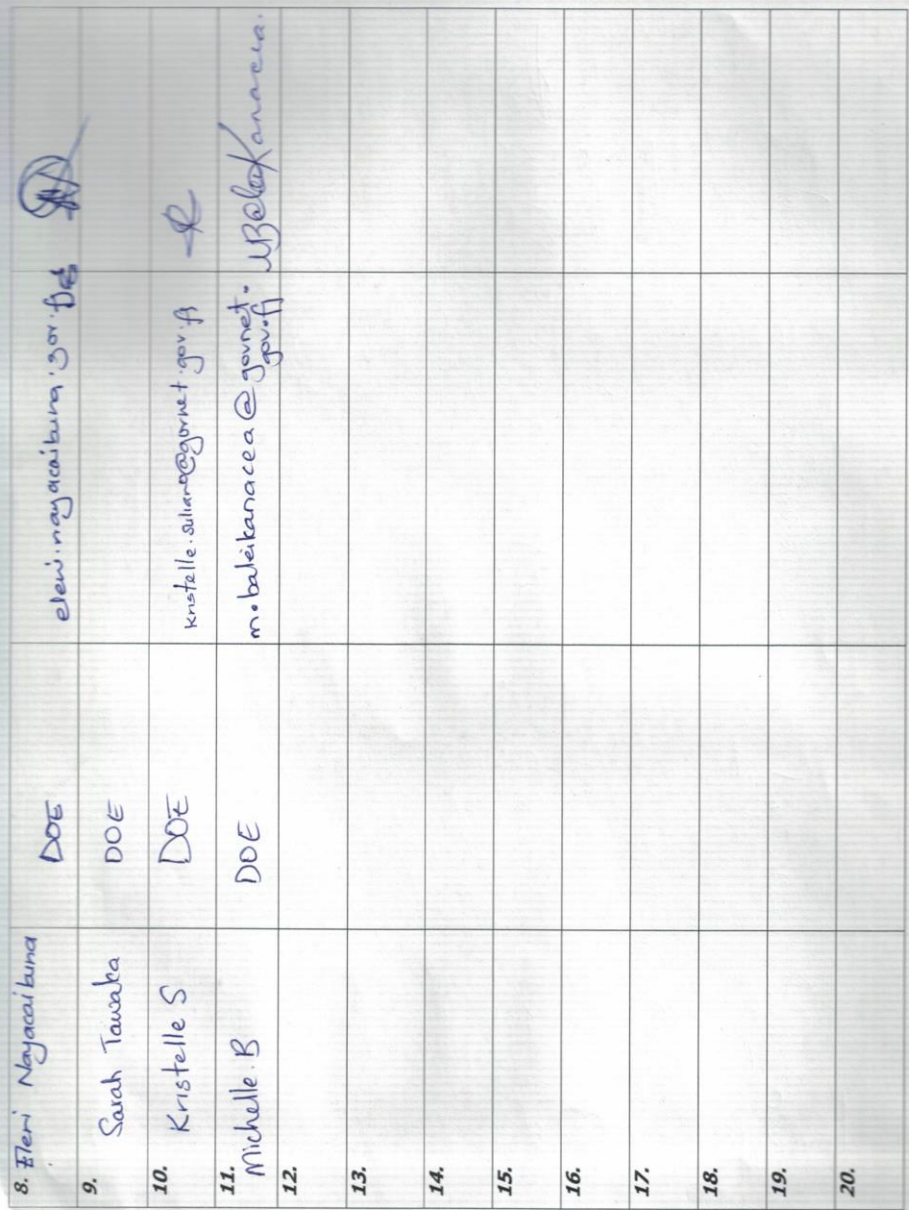 8. Eleni Nayacaibuna DOE
9. Sarah Tawaka DOE
10. Kristelle S DOE kristelle.suliano@govnet.gov.fj
11. Michelle.B DOE m.baleikanacea@govnet.
gov.fj MBaleiKanacea.
12.
13.
14.
15.
16.
17.
18.
19.
20.